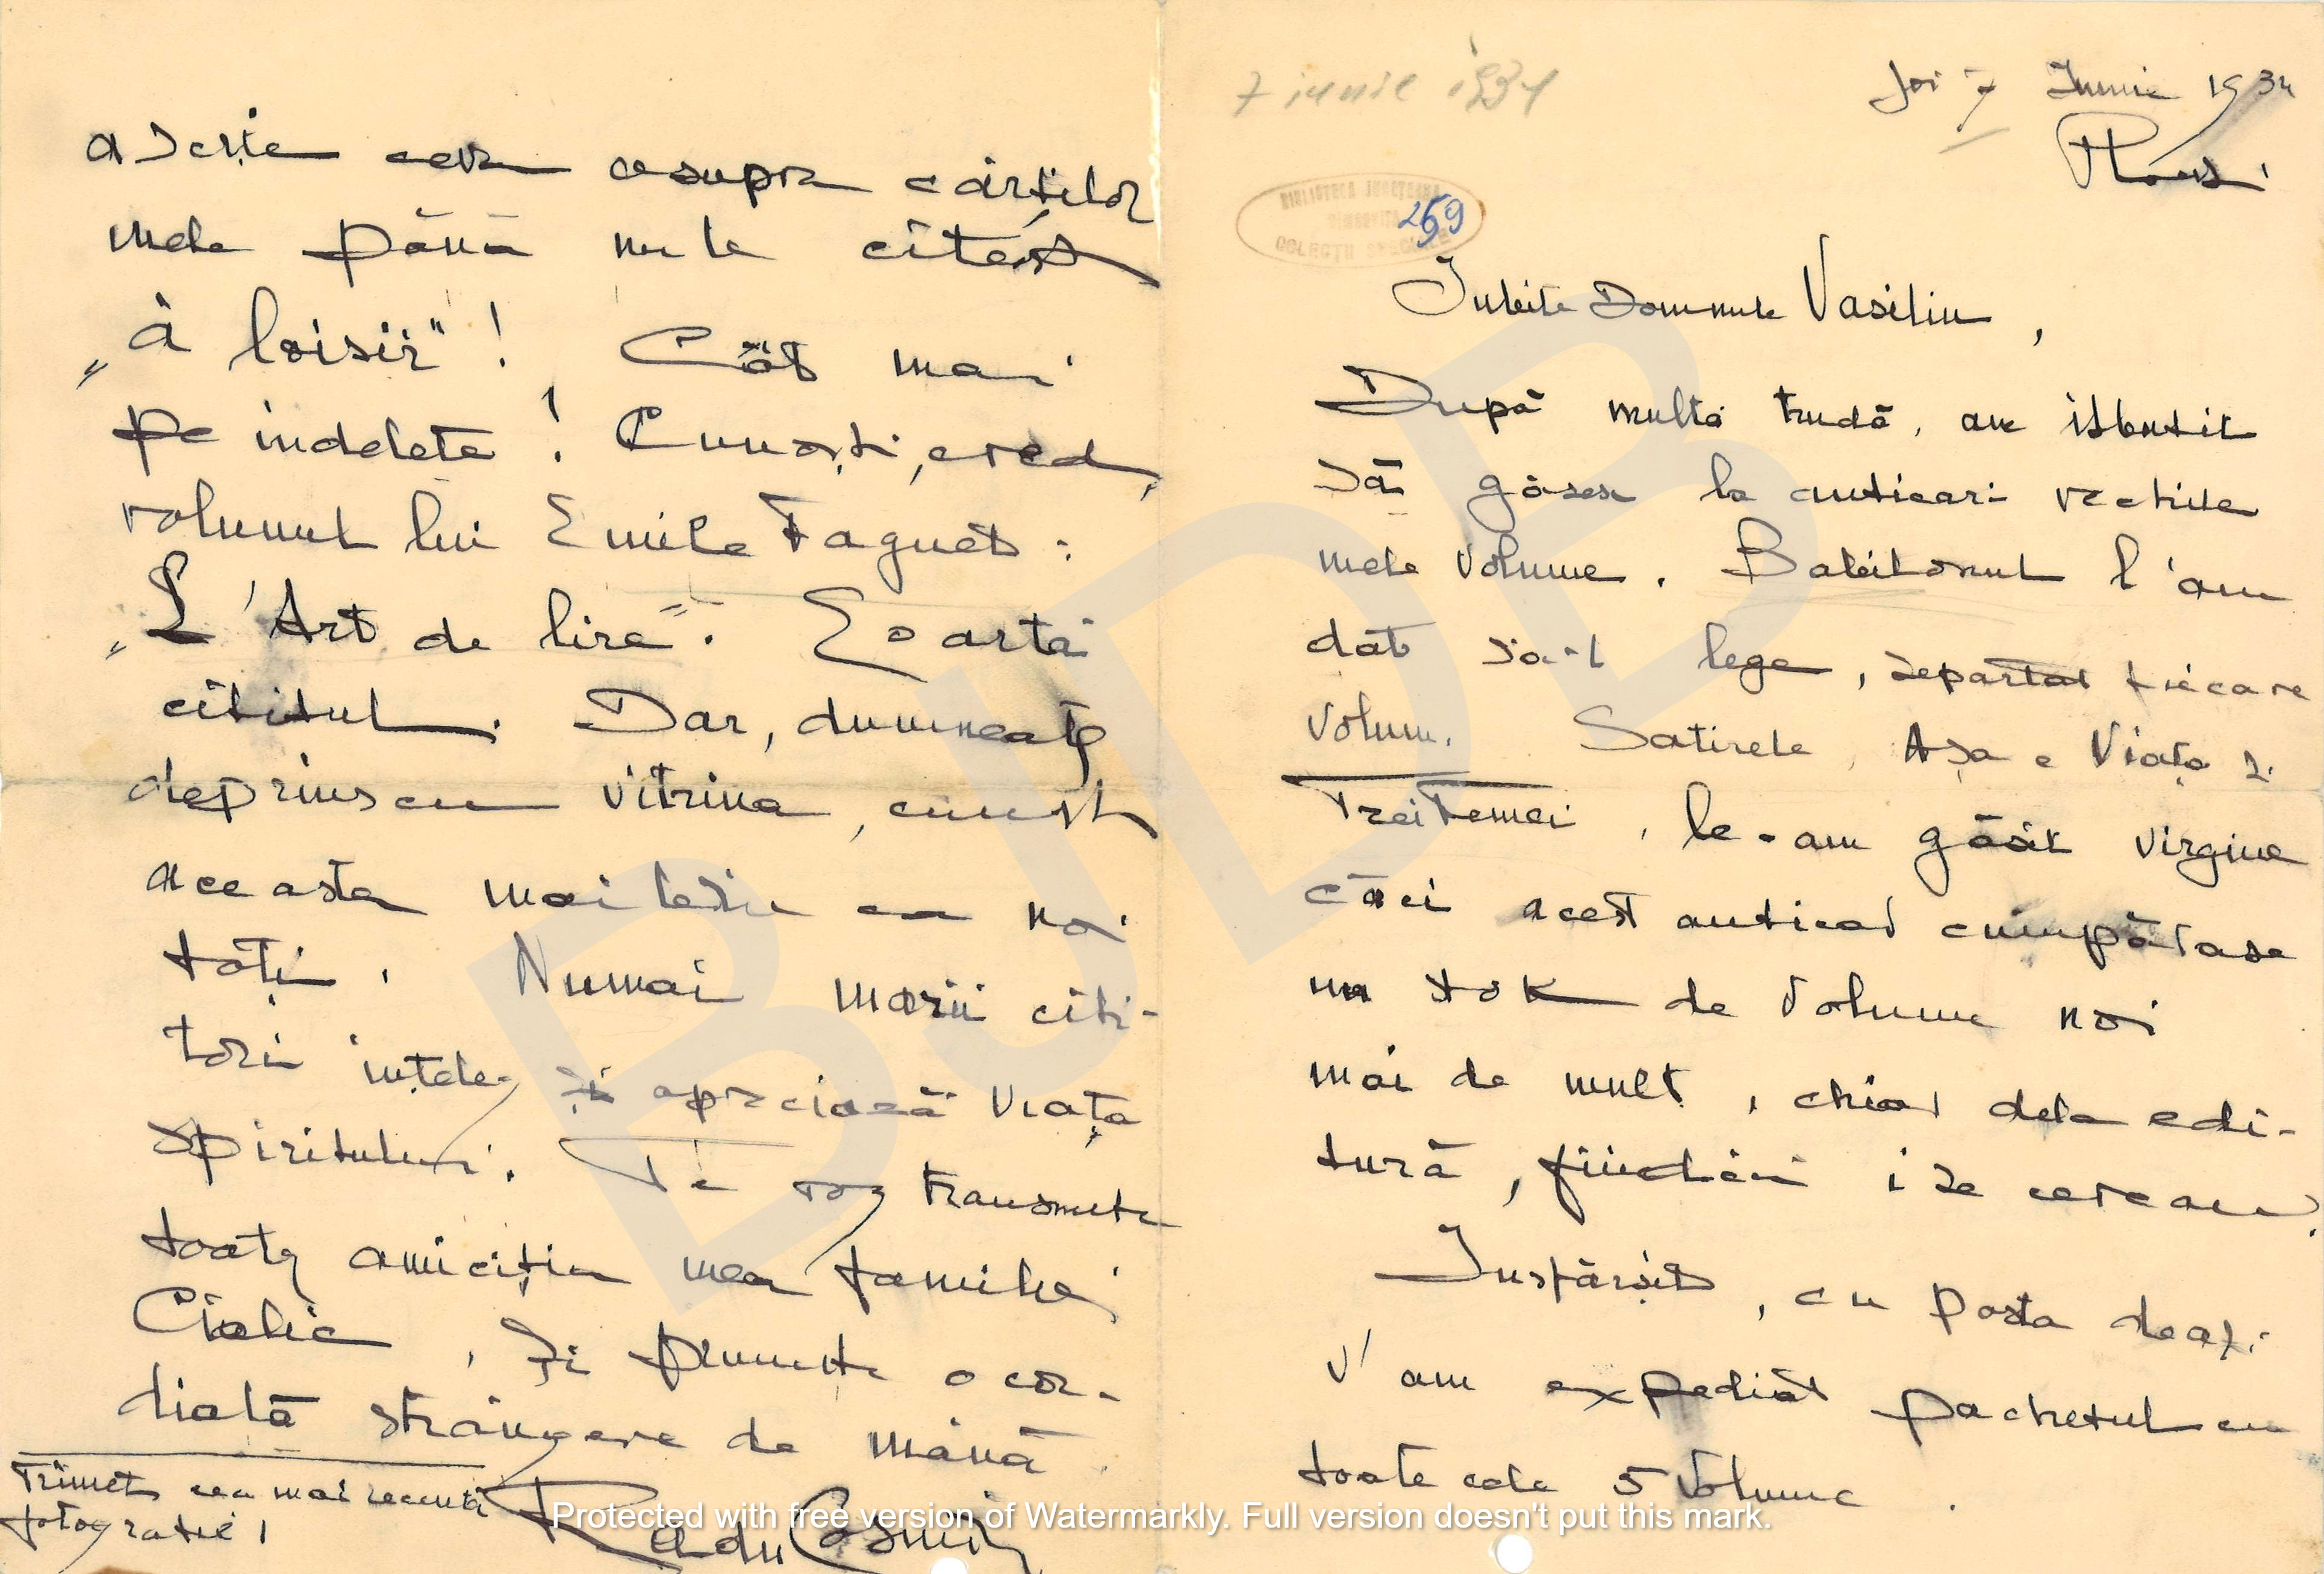 7 iunie 1934
Joi 7 Iunie 1934
Ploești
BIBLIOTECA JUDEȚEANĂ
DÂMBOVIȚA
COLECȚII SPECIALE
259
Iubite Domnule Vasiliu,
După multă trudă, am isbutit
să găsesc la anticari vechile
mele volume. Babilonul l'am
dat să-l lege, separat fiecare
volum. Satirele, Așa e Viața și
Trei Femei, le-am găsit virgine
căci acest anticar cumpărase
un stok de volume noi
mai de mult, chiar dela edi-
tură, fiindcă i se cereau.
Insfârșit, cu posta deazi
v'am expediat pachetul cu
toate cele 5 volume.
a scrie ceva asupra cărților
mele până nu le citești
„à loisir"! Cât mai
pe indelete! Cunoști, cred,
volumul lui Emile Faguet:
„L'Art de lire". E o artă
cititul. Dar, dumneata
deprins cu vitrina, cunoști
aceasta mai bine ca noi
toți. Numai marii citi-
tori înțeleg și apreciază viața
spiritului. Te rog transmite
toată amiciția mea familiei
Cialic, și primește o cor-
dială strângere de mână.
Radu Cosmin
Trimet cea mai recentă
fotografie!
BJDB
Protected with free version of Watermarkly. Full version doesn't put this mark.